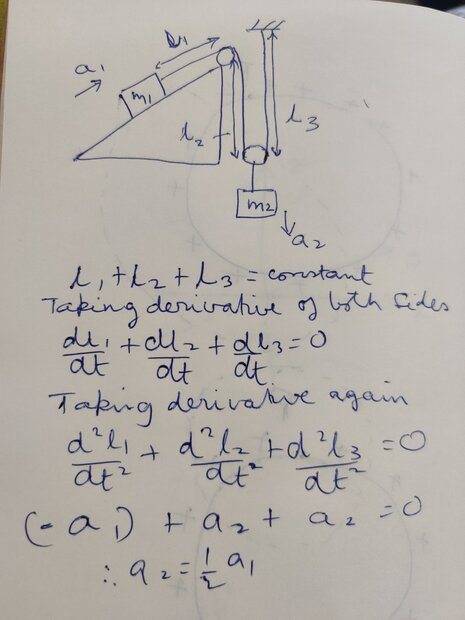 l1
a1
m1
l2
l3
m2
a2
l1 + l2 + l3 = constant
Taking derivative of both sides
dl1/dt + dl2/dt + dl3/dt = 0
Taking derivative again
d²l1/dt² + d²l2/dt² + d²l3/dt² = 0
(-a1) + a2 + a2 = 0
∴ a2 = 1/2 a1